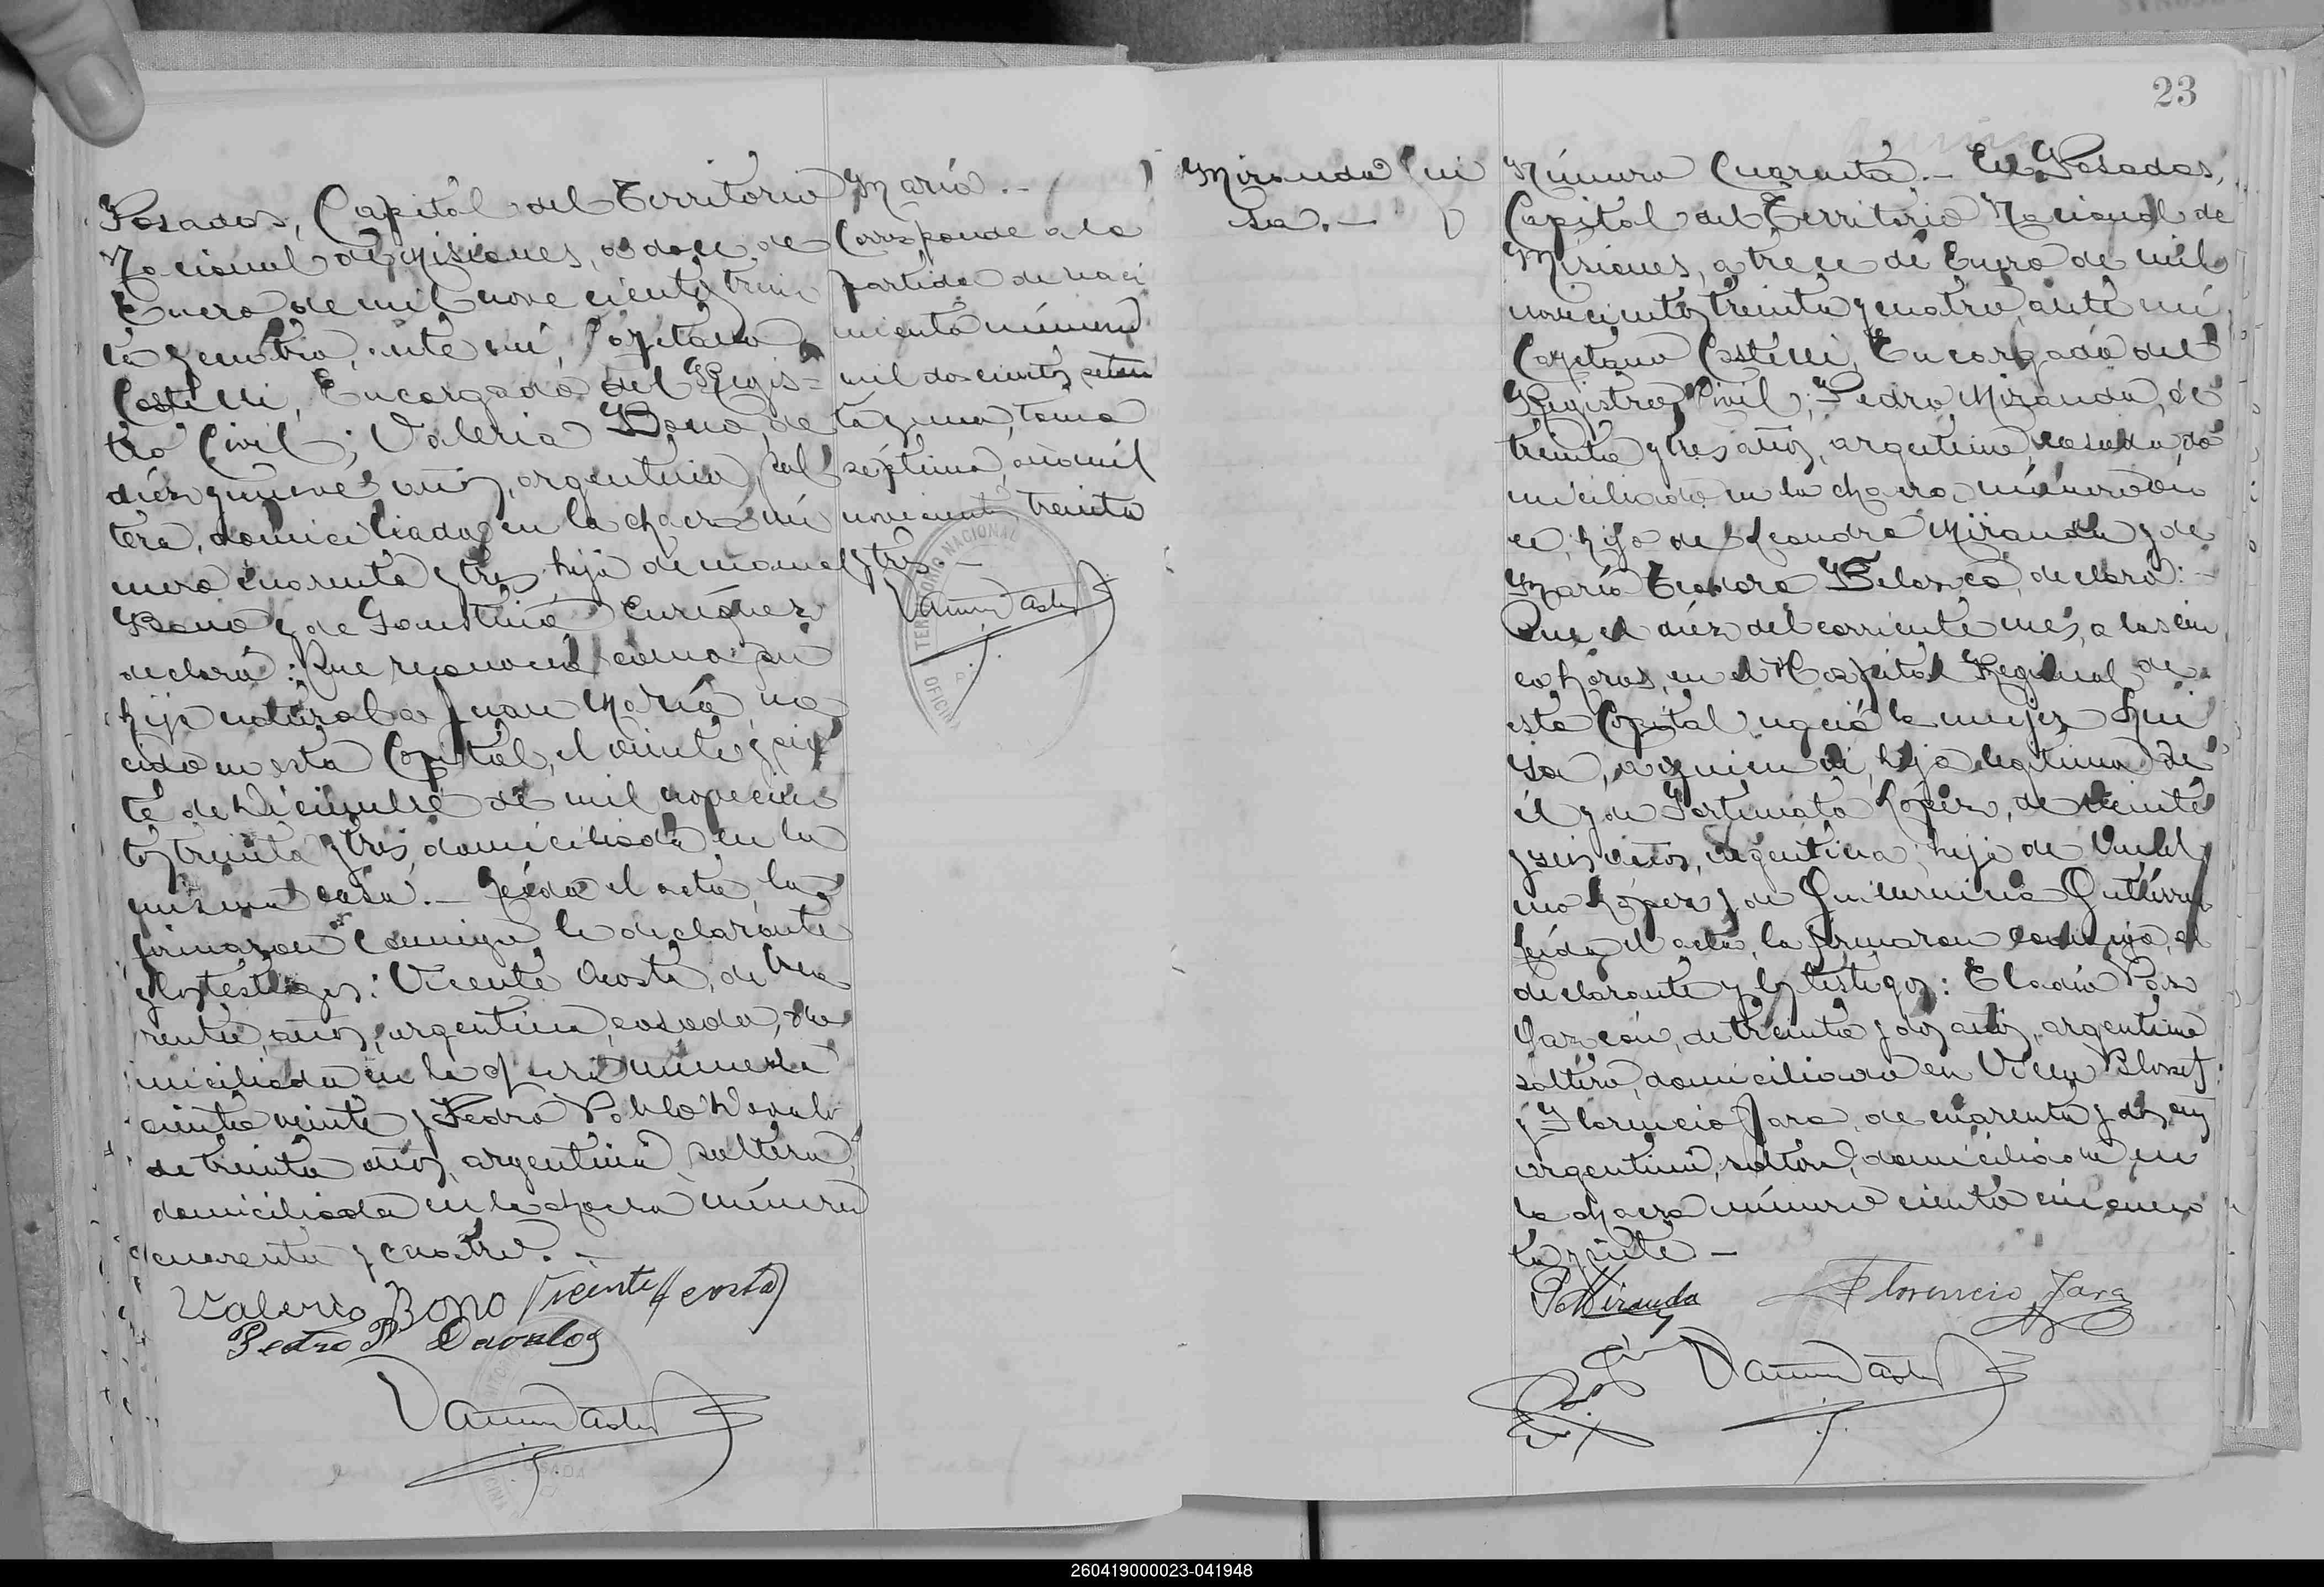 Posadas, Capital del Territorio
Nacional de Misiones, a doce de
Enero de mil novecientos trein
ta y cuatro, ante mí, Cayetano
Castelli, Encargado del Regis-
tro Civil; Valerio Bono, de
diez y nueve años, argentino, sol
tero, domiciliado en la chacra nú
mero cuarenta y tres, hijo de Manuel
Bono y de Faustina Enriquez
declaró: Que reconocía como su
hijo natural a Juan María, na
cido en esta Capital, el veinte y sie
te de Diciembre de mil novecien
tos treinta y tres, domiciliado en la
misma casa.- Leída el acta, la
firmaron conmigo el declarante
y los testigos: Vicente Acosta, de
renta años, argentino, casado, do
miciliado en la chacra número
ciento veinte y Pedro Pablo Davalos
de treinta años, argentino, soltero,
domiciliado en la chacra número
cuarenta y cuatro.-
Valerio Bono Vicente Acosta
Pedro P Davalos
María.-
Corresponde a la
partida de naci
miento número
mil doscientos seten
ta y una, tomo
séptimo, año mil
novecientos treinta
y tres.-
TERRITORIO NACIONAL
OFICINA
Miranda Lui
sa.-
23
Número Cuarenta.- En Posadas,
Capital del Territorio Nacional de
Misiones, a trece de Enero de mil
novecientos treinta y cuatro, ante mí
Cayetano Castelli, Encargado del
Registro Civil; Pedro Miranda, de
treinta y tres años, argentino, casado, do
miciliado en la chacra número on
ce, hijo de Leandro Miranda y de
María Teodora Velazco, declaró:-
Que el diez del corriente mes, a las cin
co horas, en el Hospital Regional de
esta Capital nació la mujer Lui
sa, a quien vi, hija legítima de
él y de Fortunata López, de veinte
y seis años, argentina, hija de
López y de Guillermina Gutiérrez
Leída el acta, la firmaron conmigo, el
declarante y los testigos: Eladio Paz
Garzón, de treinta y dos años, argentino
soltero, domiciliado en Villa Blosset
y Florencio Jara, de cuarenta y dos años
argentino, soltero, domiciliado en
la chacra número ciento cincuen
ta y siete -
P Miranda Florencio Jara
260419000023-041948